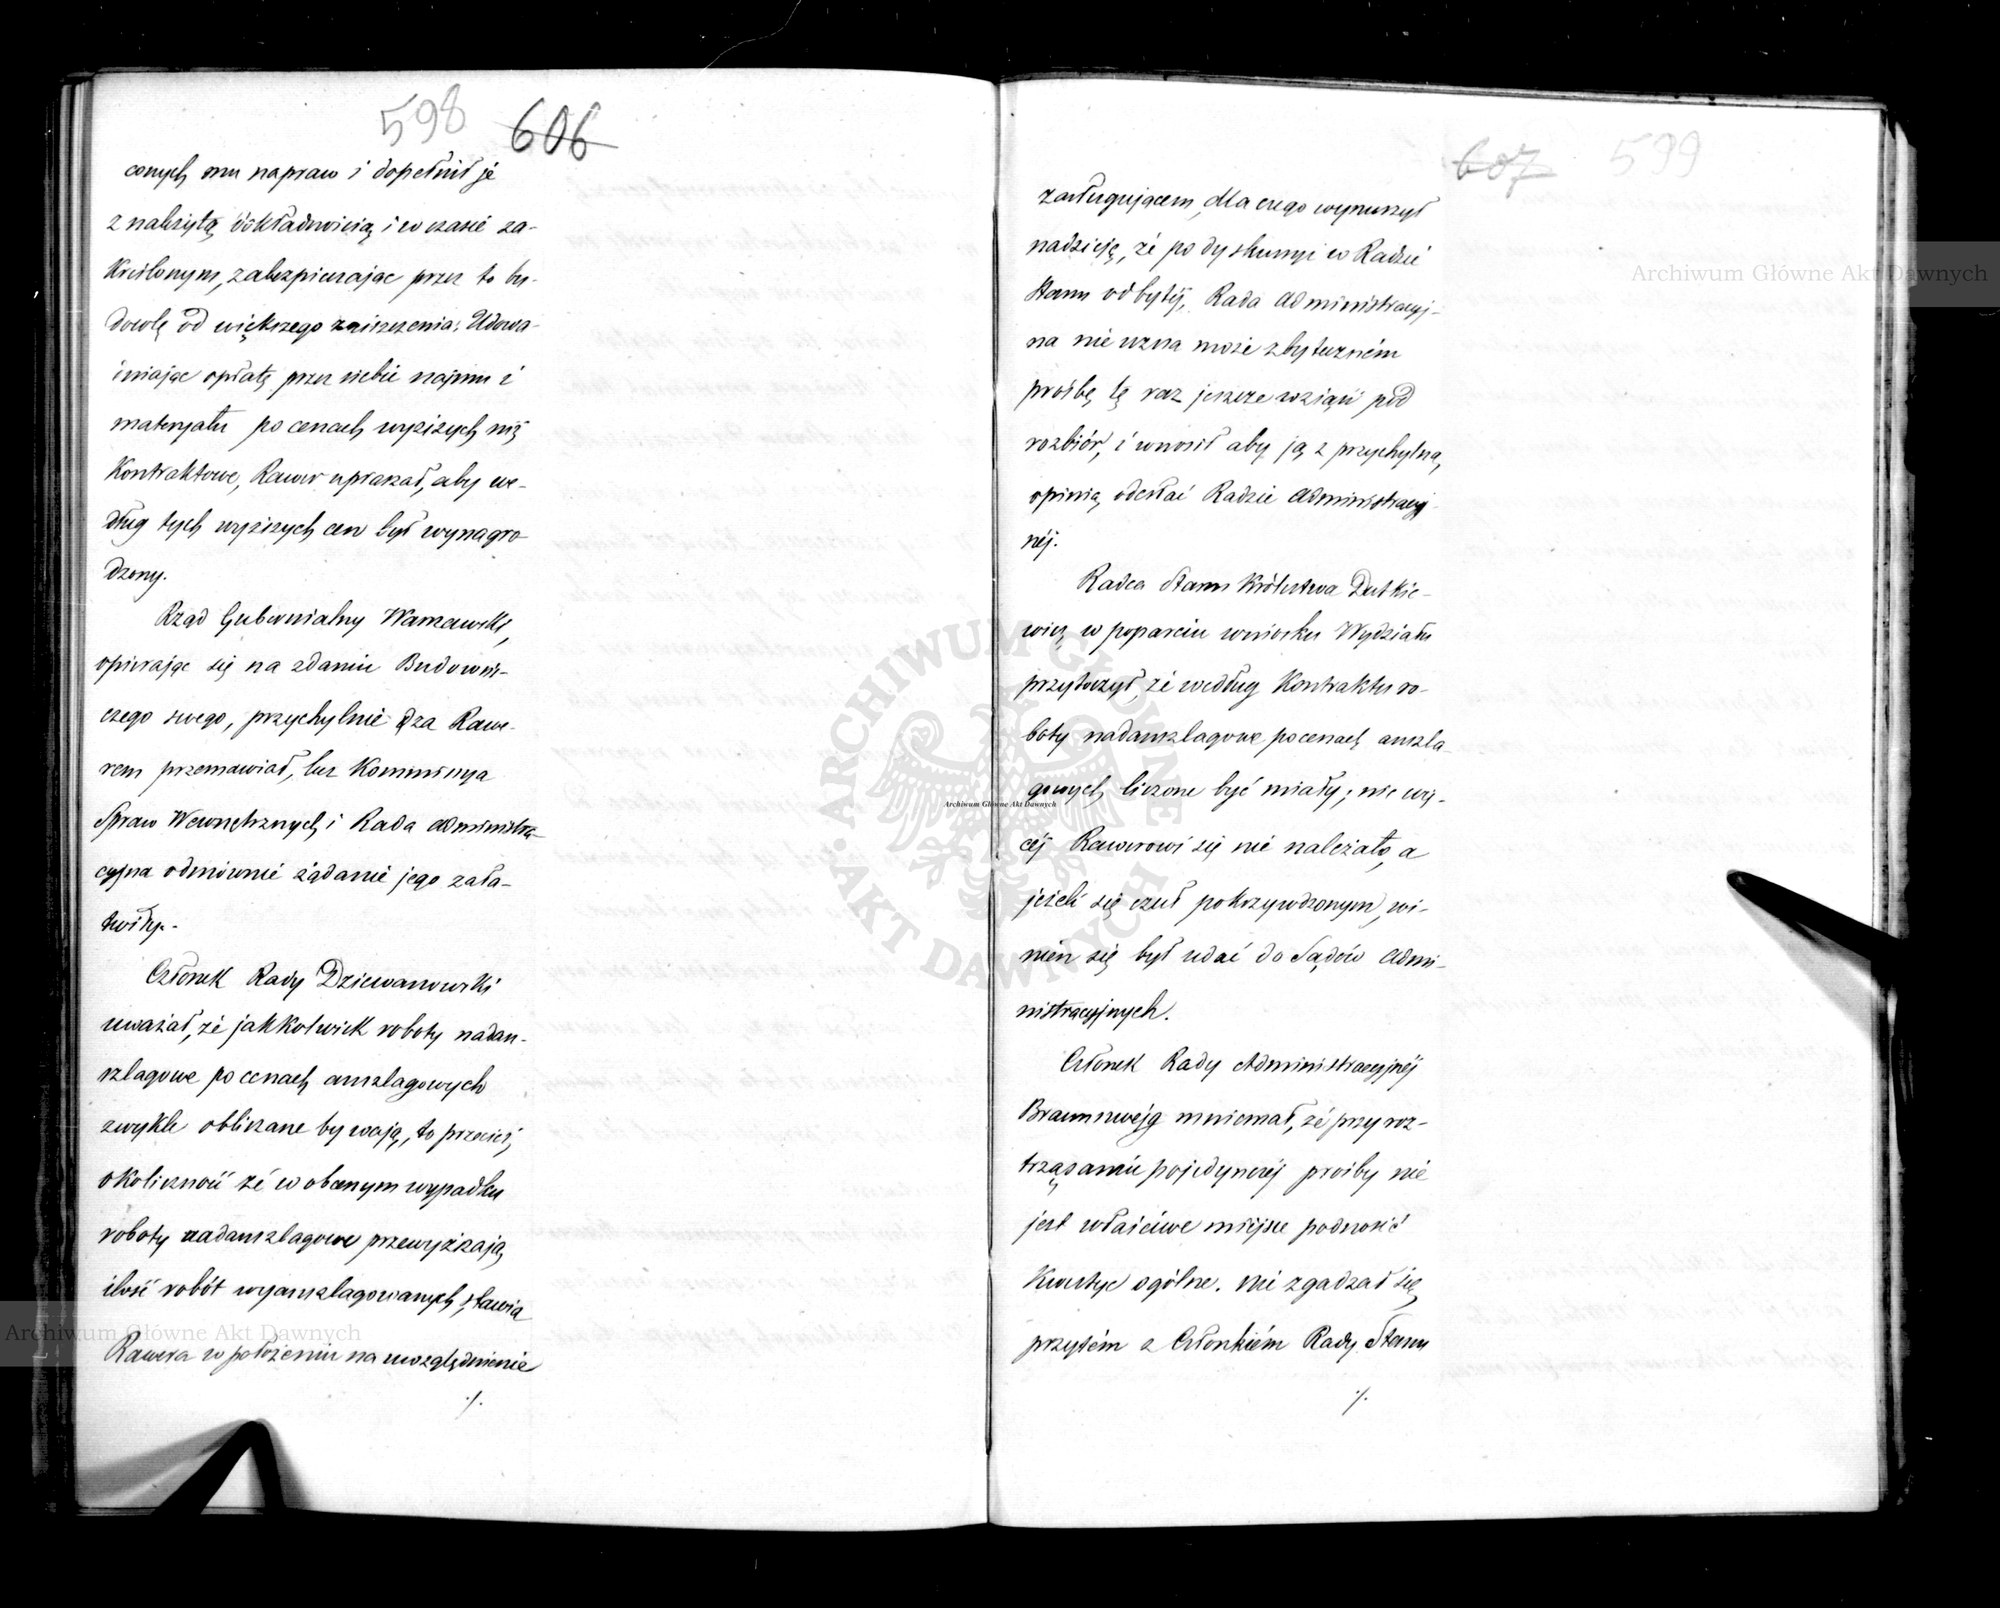 598 606
conych mu napraw i dopełnił je
z należytą dokładnością i w czasie za-
kreślonym, zabezpieczając przez to bu-
dowlę od większego zniszczenia. Udowa-
dniając opłatę przez siebie najmu i
materyału po cenach wyższych niż
Kontraktowe, Rawer upraszał, aby we-
dług tych wyższych cen był wynagro-
dzony.
Rząd Gubernialny Warszawski,
opierając się na zdaniu Budowni-
czego swego, przychylnie za Rawe-
rem przemawiał, lecz Kommissya
Spraw Wewnętrznych i Rada Administra-
cyjna odmównie żądanie jego zała-
twiły.-
Członek Rady Dziewanowski
uważał, że jakkolwiek roboty nadan-
szlagowe po cenach anszlagowych
zwykle obliczane bywają, to przecież,
okoliczność że w obecnym wypadku
roboty nadanszlagowe przewyższają
ilość robót wyanszlagowanych, stawia
Rawera w położeniu na uwzględnienie
./.
607 599
zasługującem, dla czego wynurzył
nadzieję, że po dyskussyi w Radzie
Stanu odbytéj, Rada Administracyj-
na nie uzna może zbyteczném
prośbę tę raz jeszcze wziąść pod
rozbiór, i wnosił aby ją z przychylną
opinią odesłać Radzie Administracyj-
néj.
Radca Stanu Królestwa Dutkie-
wicz w poparciu wniosku Wydziału
przytoczył, że według Kontraktu ro-
boty nadanszlagowe po cenach anszla-
gowych liczone być miały; nic wię-
céj Rawerowi się nie należało, a
jeżeli się czuł pokrzywdzonym, wi-
nien się był udać do Sądów Admi-
nistracyjnych.
Członek Rady Administracyjnéj
Braunszwejg mniemał, że przy roz-
trząsaniu pojedynczéj prośby nie
jest właściwe miejsce podnosić
Kwestye ogólne. Nie zgadzał się
przytém z Członkiém Rady Stanu
./.
Archiwum Główne Akt Dawnych
Archiwum Główne Akt Dawnych
ARCHIWUM GŁÓWNE · AKT DAWNYCH ·
Archiwum Główne Akt Dawnych